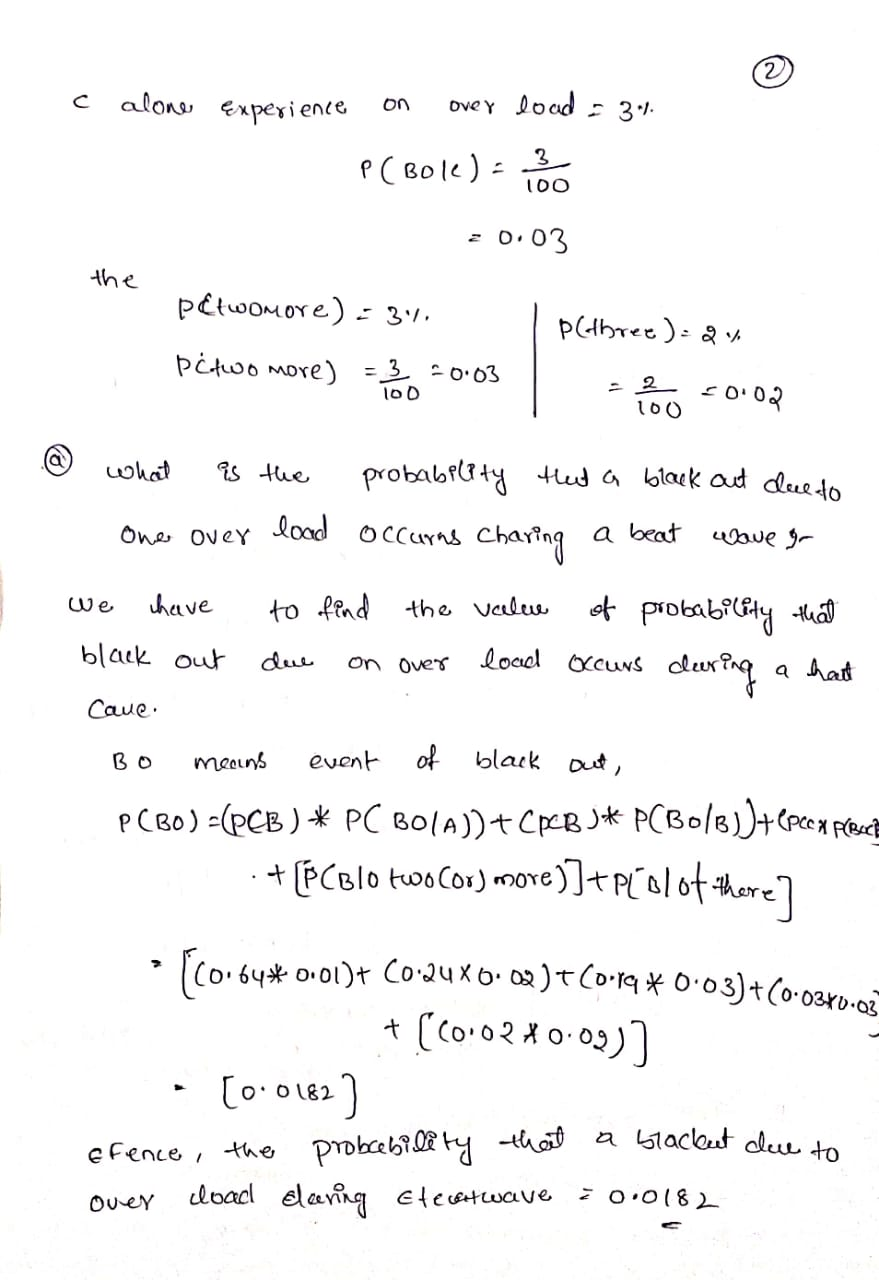 ②
C alone Experience on over load = 3%.
P(BO|C) = 3/100
= 0.03
the
P(twomore) = 3%.
P(two more) = 3/100 = 0.03
P(three) = 2%
= 2/100 = 0.02
ⓐ what is the probability that a black out due to
one over load occurns charing a beat wave
we have to find the value of probability that
black out due on over load occurs during a hart
Caue.
BO means event of black out,
P(BO) = (P(B) * P(BO|A)) + (P(B) * P(BO/B)) + (P(C *
+ [P(B|0 two (or) more)] + P[B|of there]
= [(0.64 * 0.01) + (0.24 X 0.02) + (0.19 * 0.03) + (0.03 X 0.03
+ [(0.02 * 0.02)]
= [0.0182]
the probability that a blackout due to
over load = 0.0182